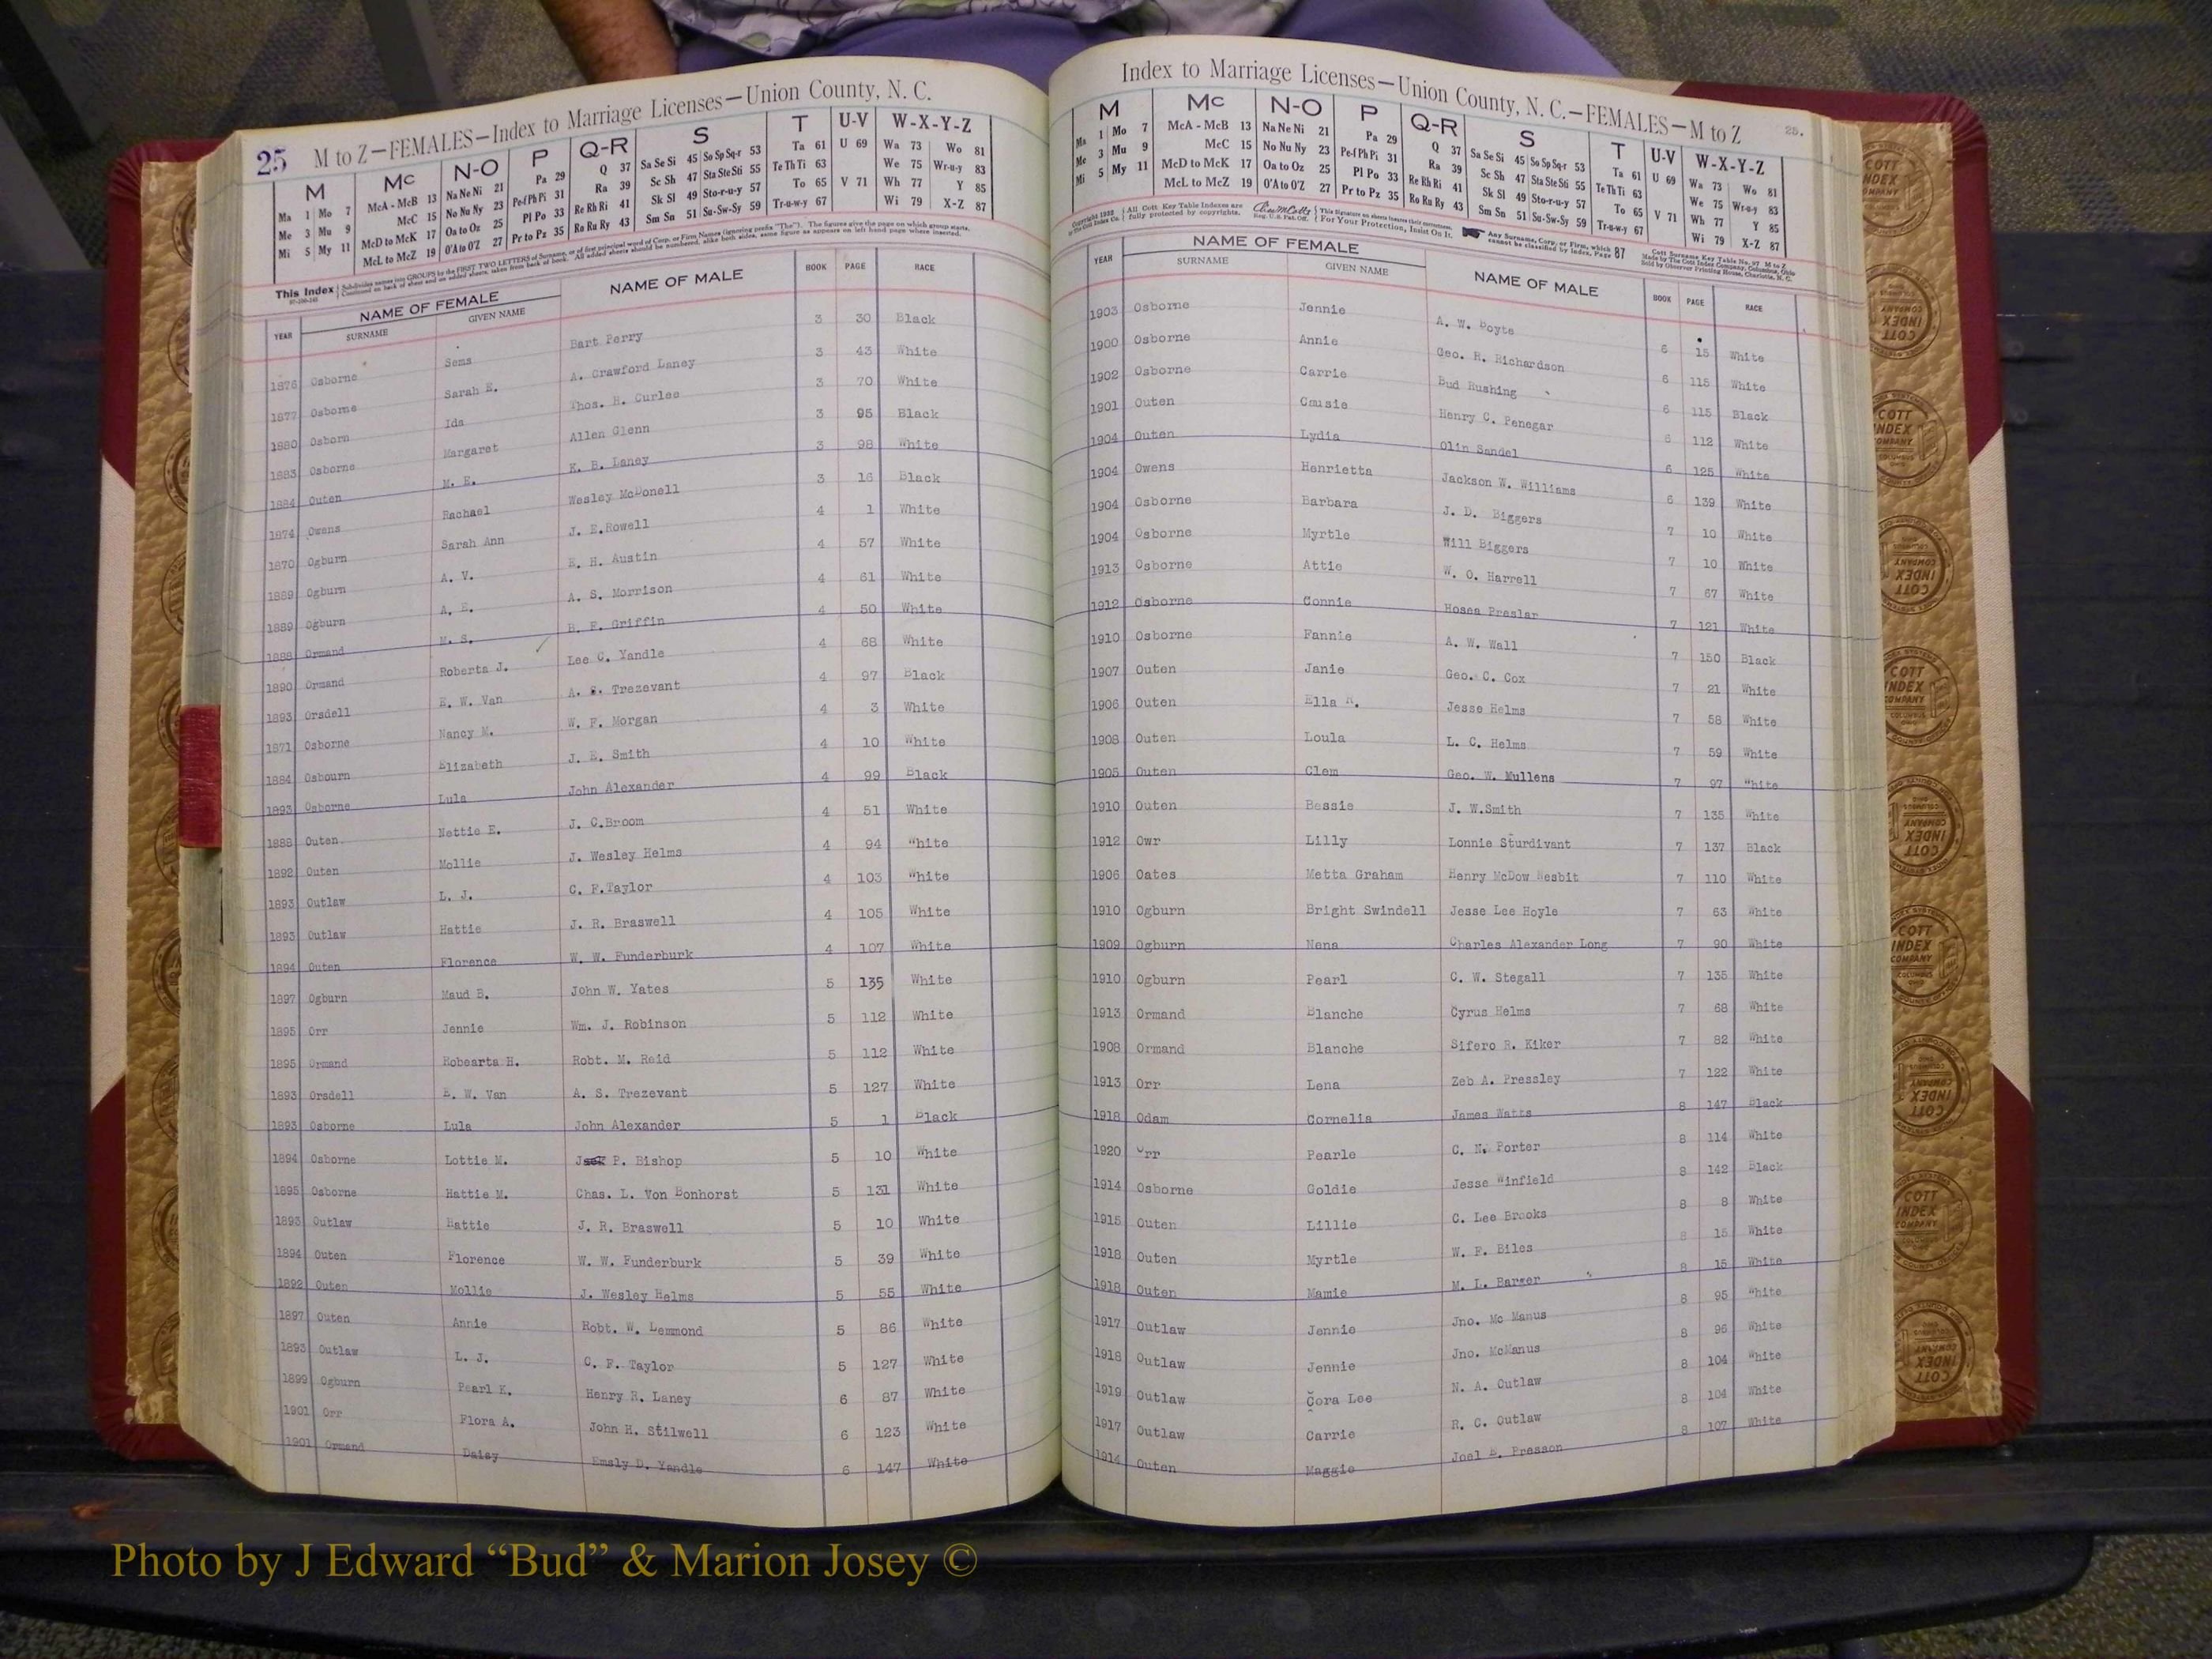 25 M to Z—FEMALES—Index to Marriage Licenses—Union County, N. C.
M Mc N-O P Q-R S T U-V W-X-Y-Z
Ma 1 Mo 7 McA - McB 13 Na Ne Ni 21 Pa 29 Q 37 Sa Se Si 45 So Sp Sq-r 53 Ta 61 U 69 Wa 73 Wo 81
Me 3 Mu 9 McC 15 No Nu Ny 23 Pe-f Ph Pi 31 Ra 39 Sc Sh 47 Sta Ste Sti 55 Te Th Ti 63 We 75 Wr-u-y 83
Mi 5 My 11 McD to McK 17 Oa to Oz 25 Pl Po 33 Re Rh Ri 41 Sk Sl 49 Sto-r-u-y 57 To 65 V 71 Wh 77 Y 85
McL to McZ 19 O'A to O'Z 27 Pr to Pz 35 Ro Ru Ry 43 Sm Sn 51 Su-Sw-Sy 59 Tr-u-w-y 67 Wi 79 X-Z 87
This Index
NAME OF FEMALE NAME OF MALE BOOK PAGE RACE
YEAR SURNAME GIVEN NAME
1876 Osborne Sems Bart Perry 3 30 Black
1877 Osborne Sarah E. A. Crawford Laney 3 43 White
1880 Osborn Ida Thos. H. Curlee 3 70 White
1883 Osborne Margaret Allen Glenn 3 95 Black
1884 Outen M. E. K. B. Laney 3 98 White
1874 Owens Rachael Wesley McDonell 3 16 Black
1870 Ogburn Sarah Ann J. E.Rowell 4 1 White
1889 Ogburn A. V. E. H. Austin 4 57 White
1889 Ogburn A. E. A. S. Morrison 4 61 White
1888 Ormand M. S. B. F. Griffin 4 50 White
1890 Ormand Roberta J. Lee C. Yandle 4 68 White
1893 Orsdell E. W. Van A. S. Trezevant 4 97 Black
1871 Osborne Nancy M. W. F. Morgan 4 3 White
1884 Osbourn Elizabeth J. E. Smith 4 10 White
1893 Osborne Lula John Alexander 4 99 Black
1888 Outen Nettie E. J. C.Broom 4 51 White
1892 Outen Mollie J. Wesley Helms 4 94 White
1893 Outlaw L. J. C. F.Taylor 4 103 White
1893 Outlaw Hattie J. R. Braswell 4 105 White
1894 Outen Florence W. W. Funderburk 4 107 White
1897 Ogburn Maud B. John W. Yates 5 135 White
1895 Orr Jennie Wm. J. Robinson 5 112 White
1895 Ormand Robearta H. Robt. M. Reid 5 112 White
1893 Orsdell E. W. Van A. S. Trezevant 5 127 White
1893 Osborne Lula John Alexander 5 1 Black
1894 Osborne Lottie M. P. Bishop 5 10 White
1895 Osborne Hattie M. Chas. L. Von Bonhorst 5 131 White
1893 Outlaw Hattie J. R. Braswell 5 10 White
1894 Outen Florence W. W. Funderburk 5 39 White
1892 Outen Mollie J. Wesley Helms 5 55 White
1897 Outen Annie Robt. W. Lemmond 5 86 White
1893 Outlaw L. J. C. F. Taylor 5 127 White
1899 Ogburn Pearl K. Henry R. Laney 6 87 White
1901 Orr Flora A. John H. Stilwell 6 123 White
1901 Ormand Daisy Emsly D. Yandle 6 147 White
Index to Marriage Licenses—Union County, N. C.—FEMALES—M to Z 25.
M Mc N-O P Q-R S T U-V W-X-Y-Z
Ma 1 Mo 7 McA - McB 13 Na Ne Ni 21 Pa 29 Q 37 Sa Se Si 45 So Sp Sq-r 53 Ta 61 U 69 Wa 73 Wo 81
Me 3 Mu 9 McC 15 No Nu Ny 23 Pe-f Ph Pi 31 Ra 39 Sc Sh 47 Sta Ste Sti 55 Te Th Ti 63 We 75 Wr-u-y 83
Mi 5 My 11 McD to McK 17 Oa to Oz 25 Pl Po 33 Re Rh Ri 41 Sk Sl 49 Sto-r-u-y 57 To 65 V 71 Wh 77 Y 85
McL to McZ 19 O'A to O'Z 27 Pr to Pz 35 Ro Ru Ry 43 Sm Sn 51 Su-Sw-Sy 59 Tr-u-w-y 67 Wi 79 X-Z 87
All Cott Key Table Indexes are fully protected by copyrights.
For Your Protection, Insist On It.
Any Surname, Corp. or Firm, which cannot be classified by Index, Page 87
NAME OF FEMALE NAME OF MALE BOOK PAGE RACE
YEAR SURNAME GIVEN NAME
1903 Osborne Jennie A. W. Boyte 6 15 White
1900 Osborne Annie Geo. H. Richardson 6 115 White
1902 Osborne Carrie Bud Rushing 6 115 Black
1901 Outen Causie Henry C. Penegar 6 112 White
1904 Outen Lydia Olin Sandel 6 125 White
1904 Owens Henrietta Jackson W. Williams 6 139 White
1904 Osborne Barbara J. D. Biggers 7 10 White
1904 Osborne Myrtle Will Biggers 7 10 White
1913 Osborne Attie W. O. Harrell 7 67 White
1912 Osborne Connie Hosea Preslar 7 121 White
1910 Osborne Fannie A. W. Wall 7 150 Black
1907 Outen Janie Geo. C. Cox 7 21 White
1906 Outen Ella Jesse Helms 7 58 White
1908 Outen Loula L. C. Helms 7 59 White
1905 Outen Clem Geo. W. Mullens 7 97 White
1910 Outen Bessie J. W.Smith 7 135 White
1912 Owr Lilly Lonnie Sturdivant 7 137 Black
1906 Oates Metta Graham Henry McDow Nesbit 7 110 White
1910 Ogburn Bright Swindell Jesse Lee Hoyle 7 63 White
1909 Ogburn Nena Charles Alexander Long 7 90 White
1910 Ogburn Pearl C. W. Stegall 7 135 White
1913 Ormand Blanche Cyrus Helms 7 68 White
1908 Ormand Blanche Sifero R. Kiker 7 82 White
1913 Orr Lena Zeb A. Pressley 7 122 White
1918 Odam Cornelia James Watts 8 147 Black
1920 Orr Pearle C. N. Porter 8 114 White
1914 Osborne Goldie Jesse Winfield 8 142 Black
1915 Outen Lillie C. Lee Brooks 8 8 White
1918 Outen Myrtle W. F. Biles 8 15 White
1918 Outen Mamie M. L. Barger 8 15 White
1917 Outlaw Jennie Jno. Mc Manus 8 95 White
1918 Outlaw Jennie Jno. McManus 8 96 White
1919 Outlaw Cora Lee N. A. Outlaw 8 104 White
1917 Outlaw Carrie R. C. Outlaw 8 104 White
1914 Outen Maggie Joel E. Presson 8 107 White
COTT INDEX COMPANY COLUMBUS OHIO
Photo by J Edward “Bud” & Marion Josey ©